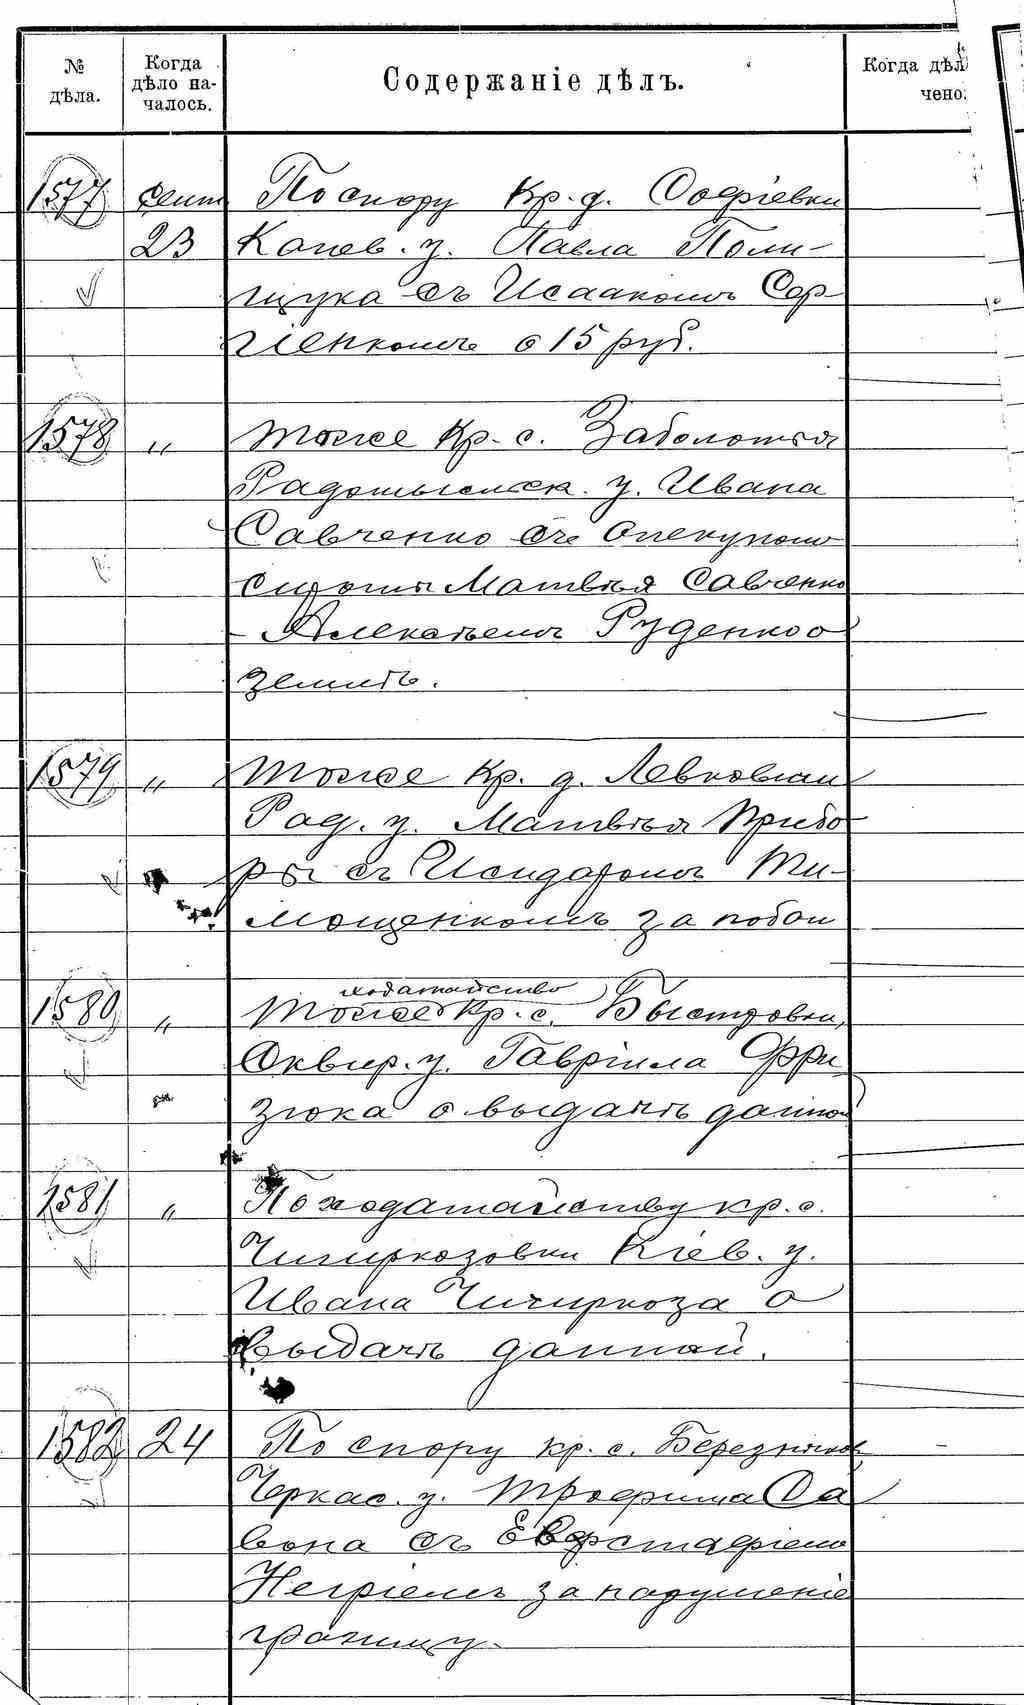 № дѣла.
Когда дѣло на-чалось.
Содержаніе дѣлъ.
Когда дѣл чено.
1577 Сент 23
По спору кр. д. Софіевки
Канев. у. Павла Поли-
щука съ Исаакомъ Сер-
гіенкомъ о 15 руб.
1578 "
Тоже кр. с. Заболотья
Радомысльск. у. Ивана
Савченко съ опекуномъ
сироты Матвѣя Савченко
- Алексѣемъ Руденко о
землѣ.
1579 "
Тоже кр. д. Левковки
Рад. у. Матвѣя Прибо-
ры съ Исидоромъ Ти-
мощенкомъ за побои
1580 "
ходатайство
Тоже кр. с. Быстровки,
Сквир. у. Гавріила Фри-
зюка о выдачѣ данной
1581 "
По ходатайству кр. с.
Чичиркозовки Кіев. у.
Ивана Чичиркоза о
выдачѣ данной.
1582 24
По спору кр. с. Березняков
Черкас. у. Трофима Са
вона съ Евфстафіемъ
Негріемъ за нарушеніе
границу.